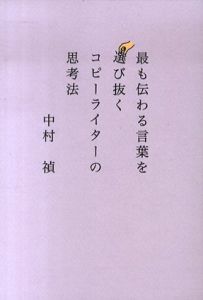 最も伝わる言葉を
選び抜く
コピーライターの
思考法
中村 禎